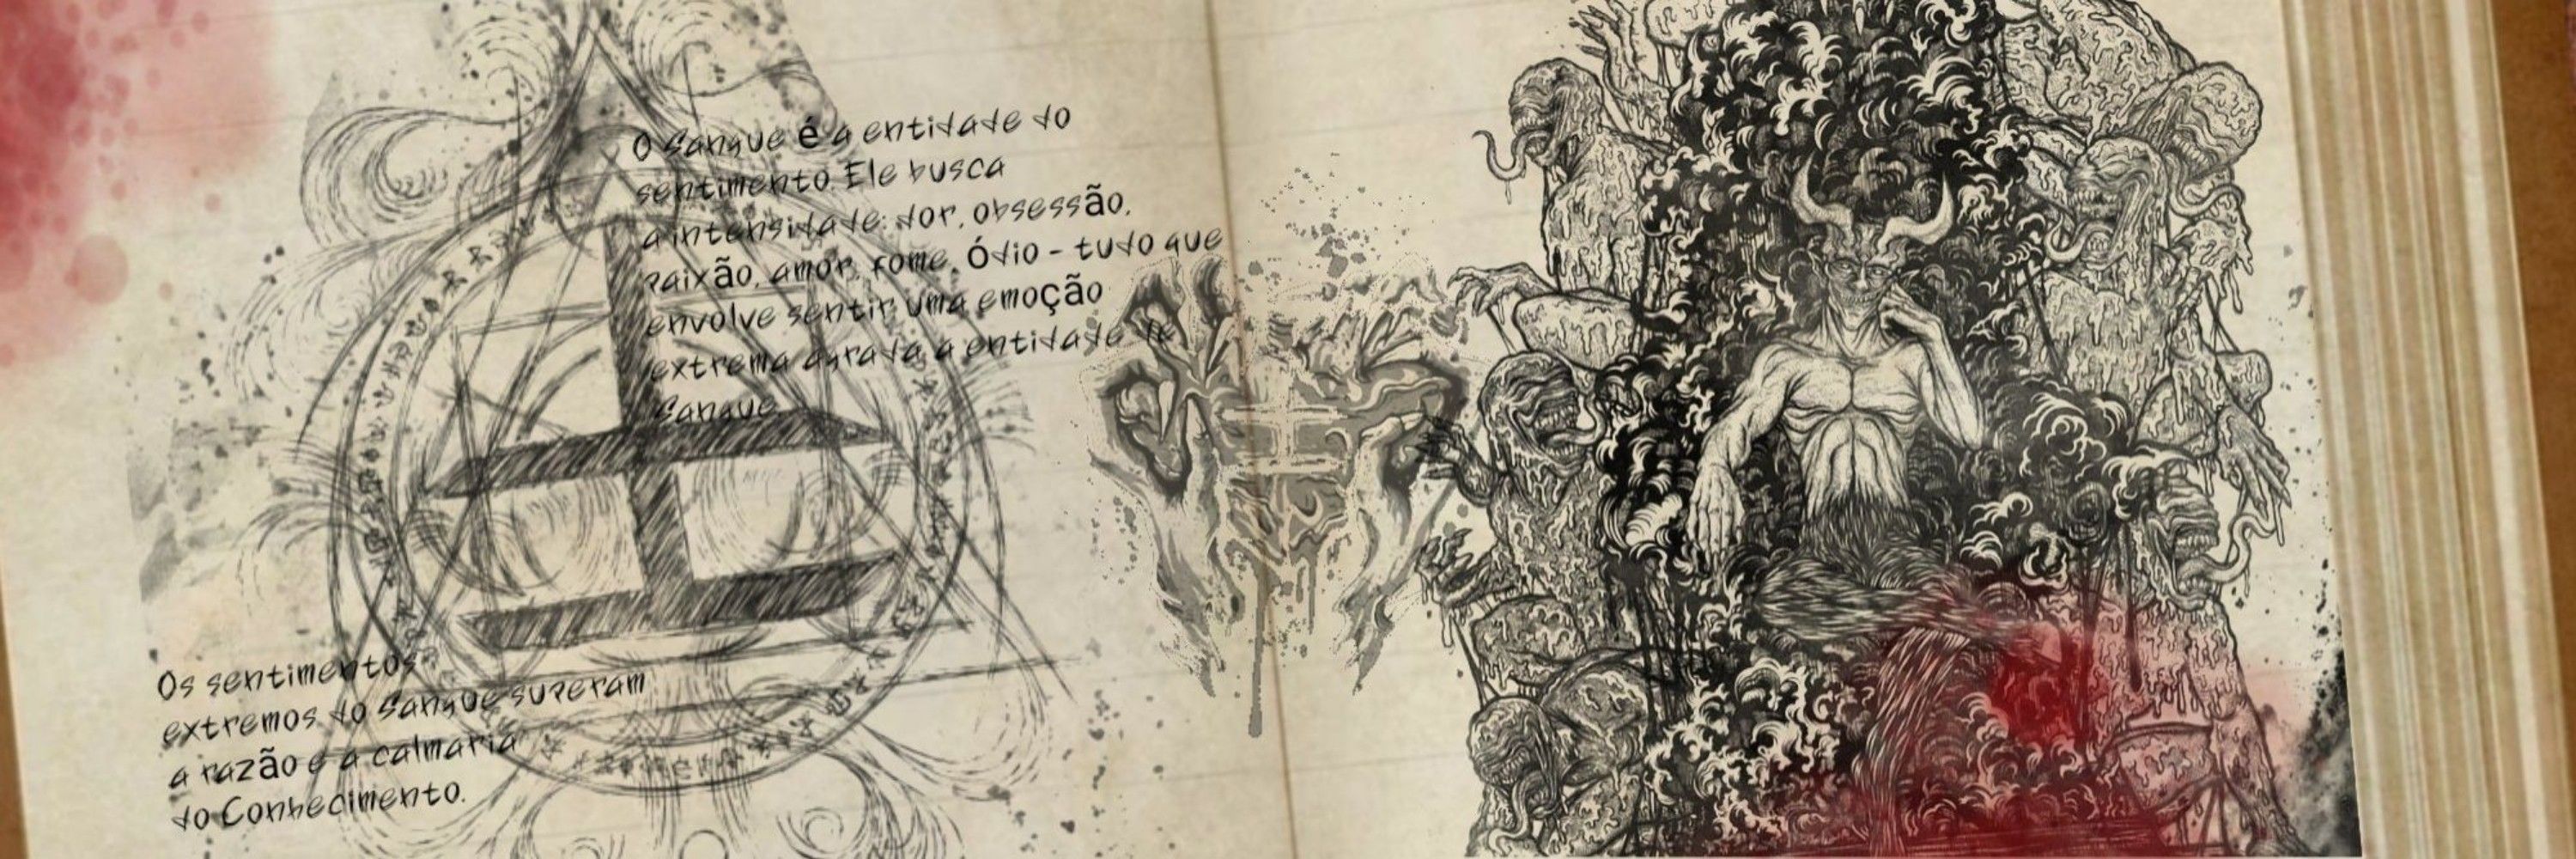 O Sangue é a entidade do
sentimento. Ele busca
a intensidade: dor, obsessão,
paixão, amor, fome, Ódio - tudo que
envolve sentir uma emoção
extrema agrada a entidade de
Sangue.
Os sentimentos
extremos do Sangue superam
a razão e a calmaria
do Conhecimento.